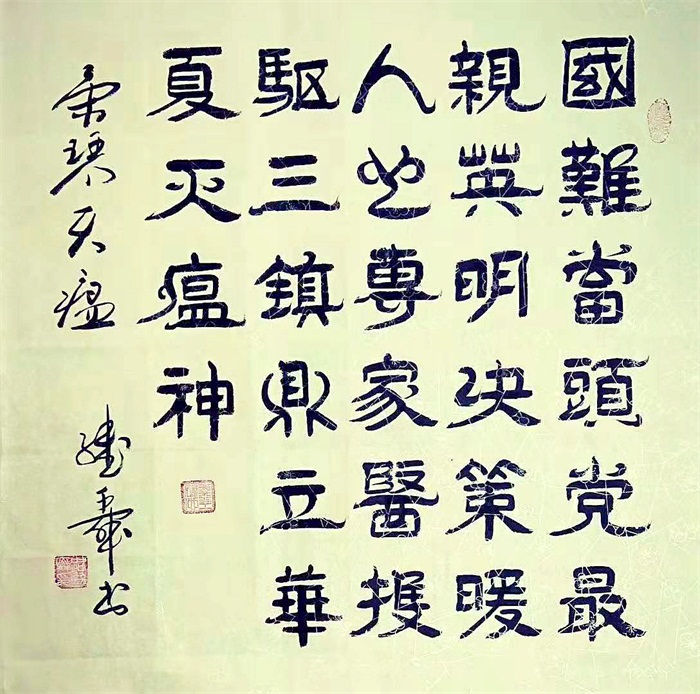 國難當頭党最
親英明决策暖
人心專家醫護
驅三鎮鼎立華
夏灭瘟神
天瘟
书